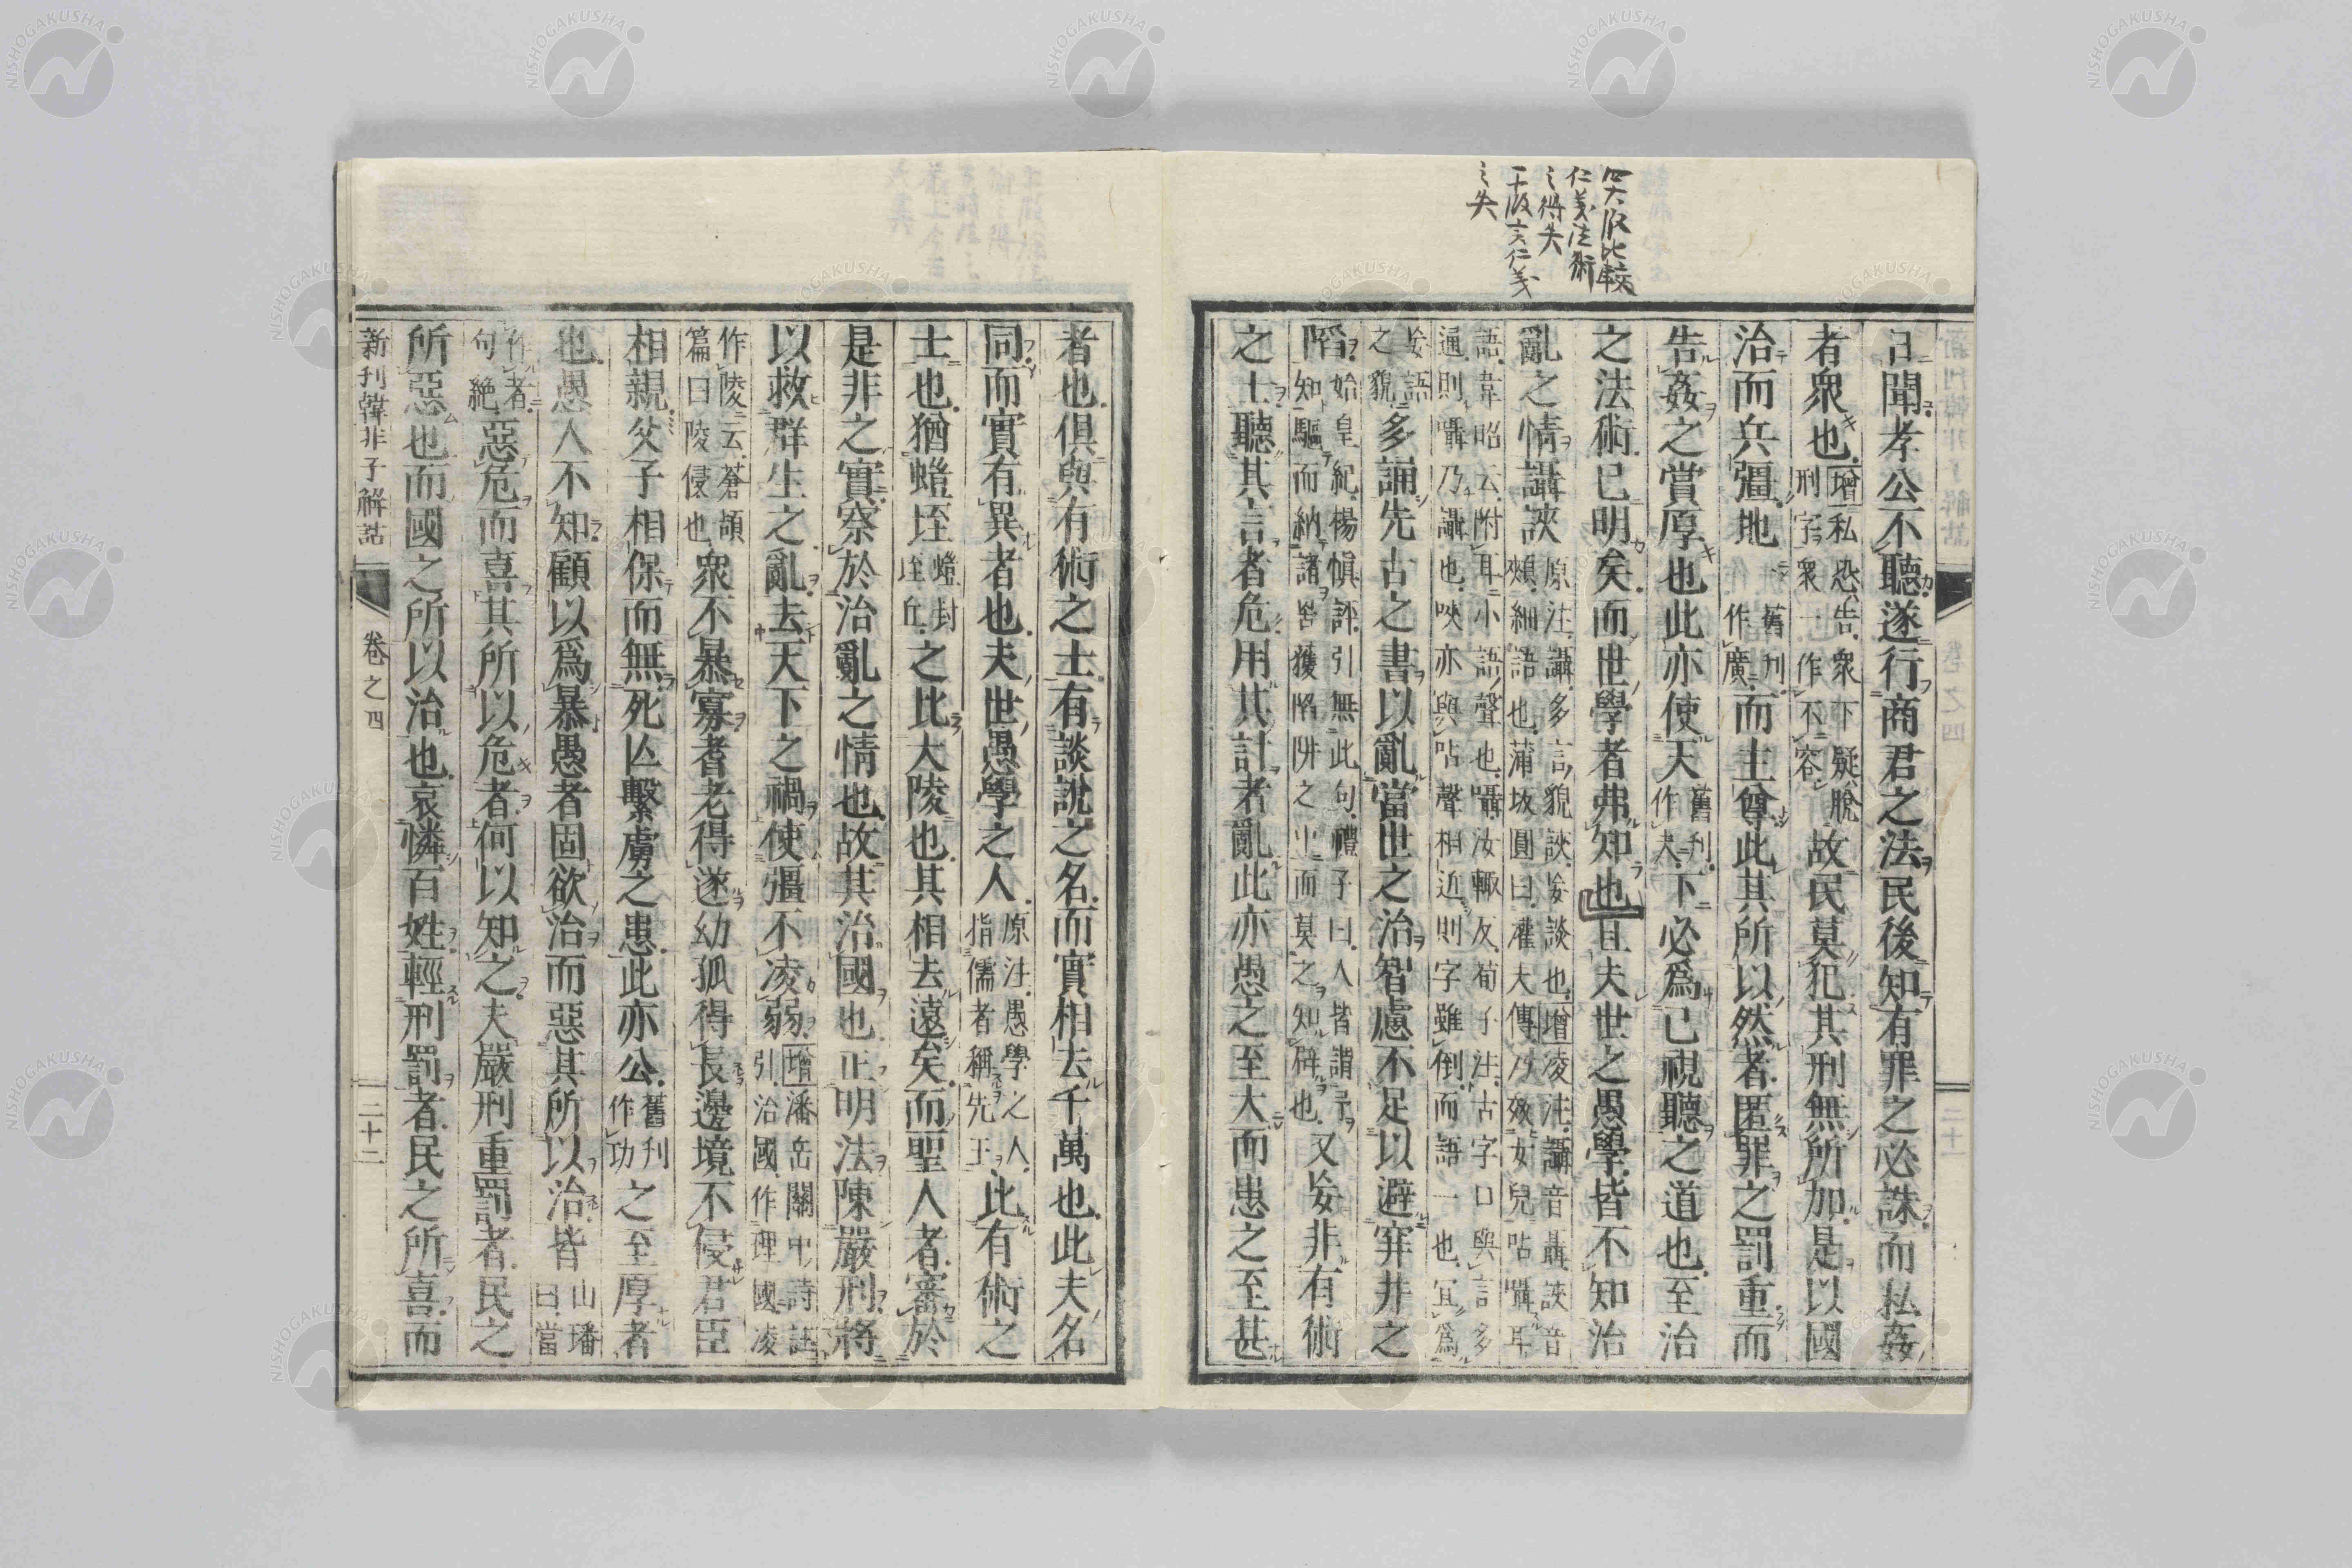 四大段比較
仁義法術
之得失
一段言仁義
之失
言聞孝公不聽遂行商君之法民後知有罪之必誅而私姦
者衆也增私恐告衆下疑脫刑字衆一作不容故民莫犯其刑無所加是以國
治而兵彊地舊刋作廣而主尊此其所以然者匿罪之罰重而
告姦之賞厚也此亦使天舊刋作夫下必爲己視聽之道也至治
之法術已明矣而世學者弗知也且夫世之愚學皆不知治
亂之情讘䛟原注讘多言貌䛟妄談也增凌注讘音聶䛟音頰細語也蒲坂圓曰灌夫傳乃效女兒呫囁耳
語韋昭云附耳小語聲也囁汝輒反荀子注古字口與言多通則囁乃讘也唊亦與呫聲相近則字雖倒而語一也冝爲
妄語之貌多誦先古之書以亂當世之治智慮不足以避穽井之
陷始皇紀楊愼評引無此句禮子曰人皆謂予知驅而納諸罟獲陷阱之中而莫之知辟也又妄非有術
之士聽其言者危用其計者亂此亦愚之至大而患之至甚
者也俱與有術之士有談說之名而實相去千萬也此夫名
同而實有異者也夫世愚學之人原注愚學之人指儒者稱先王此有術之
士也猶螘垤螘封垤丘之比大陵也其相去遠矣而聖人者審於
是非之實察於治亂之情也故其治國也正明法陳嚴刑將
以救群生之亂去天下之禍使彊不凌弱增潘岳關中詩註引治國作理國凌
作陵云蒼頡篇曰陵侵也衆不暴寡耆老得遂幼孤得長邊境不侵君臣
相親父子相保而無死亾繫虜之患此亦公舊刋作功之至厚者
也愚人不知顧以爲暴愚者固欲治而惡其所以治皆山璠曰當
作者句絶惡危而喜其所以危者何以知之夫嚴刑重罰者民之
所惡也而國之所以治也哀憐百姓輕刑罰者民之所喜而
新刋韓非子解詁 卷之四 二十二